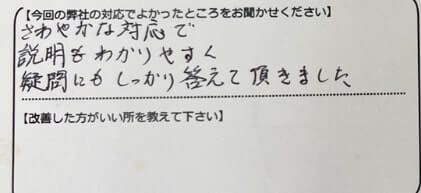 【今回の弊社の対応でよかったところをお聞かせください】
さわやかな対応で
説明もわかりやすく
疑問にもしっかり答えて頂きました
【改善した方がいい所を教えて下さい】